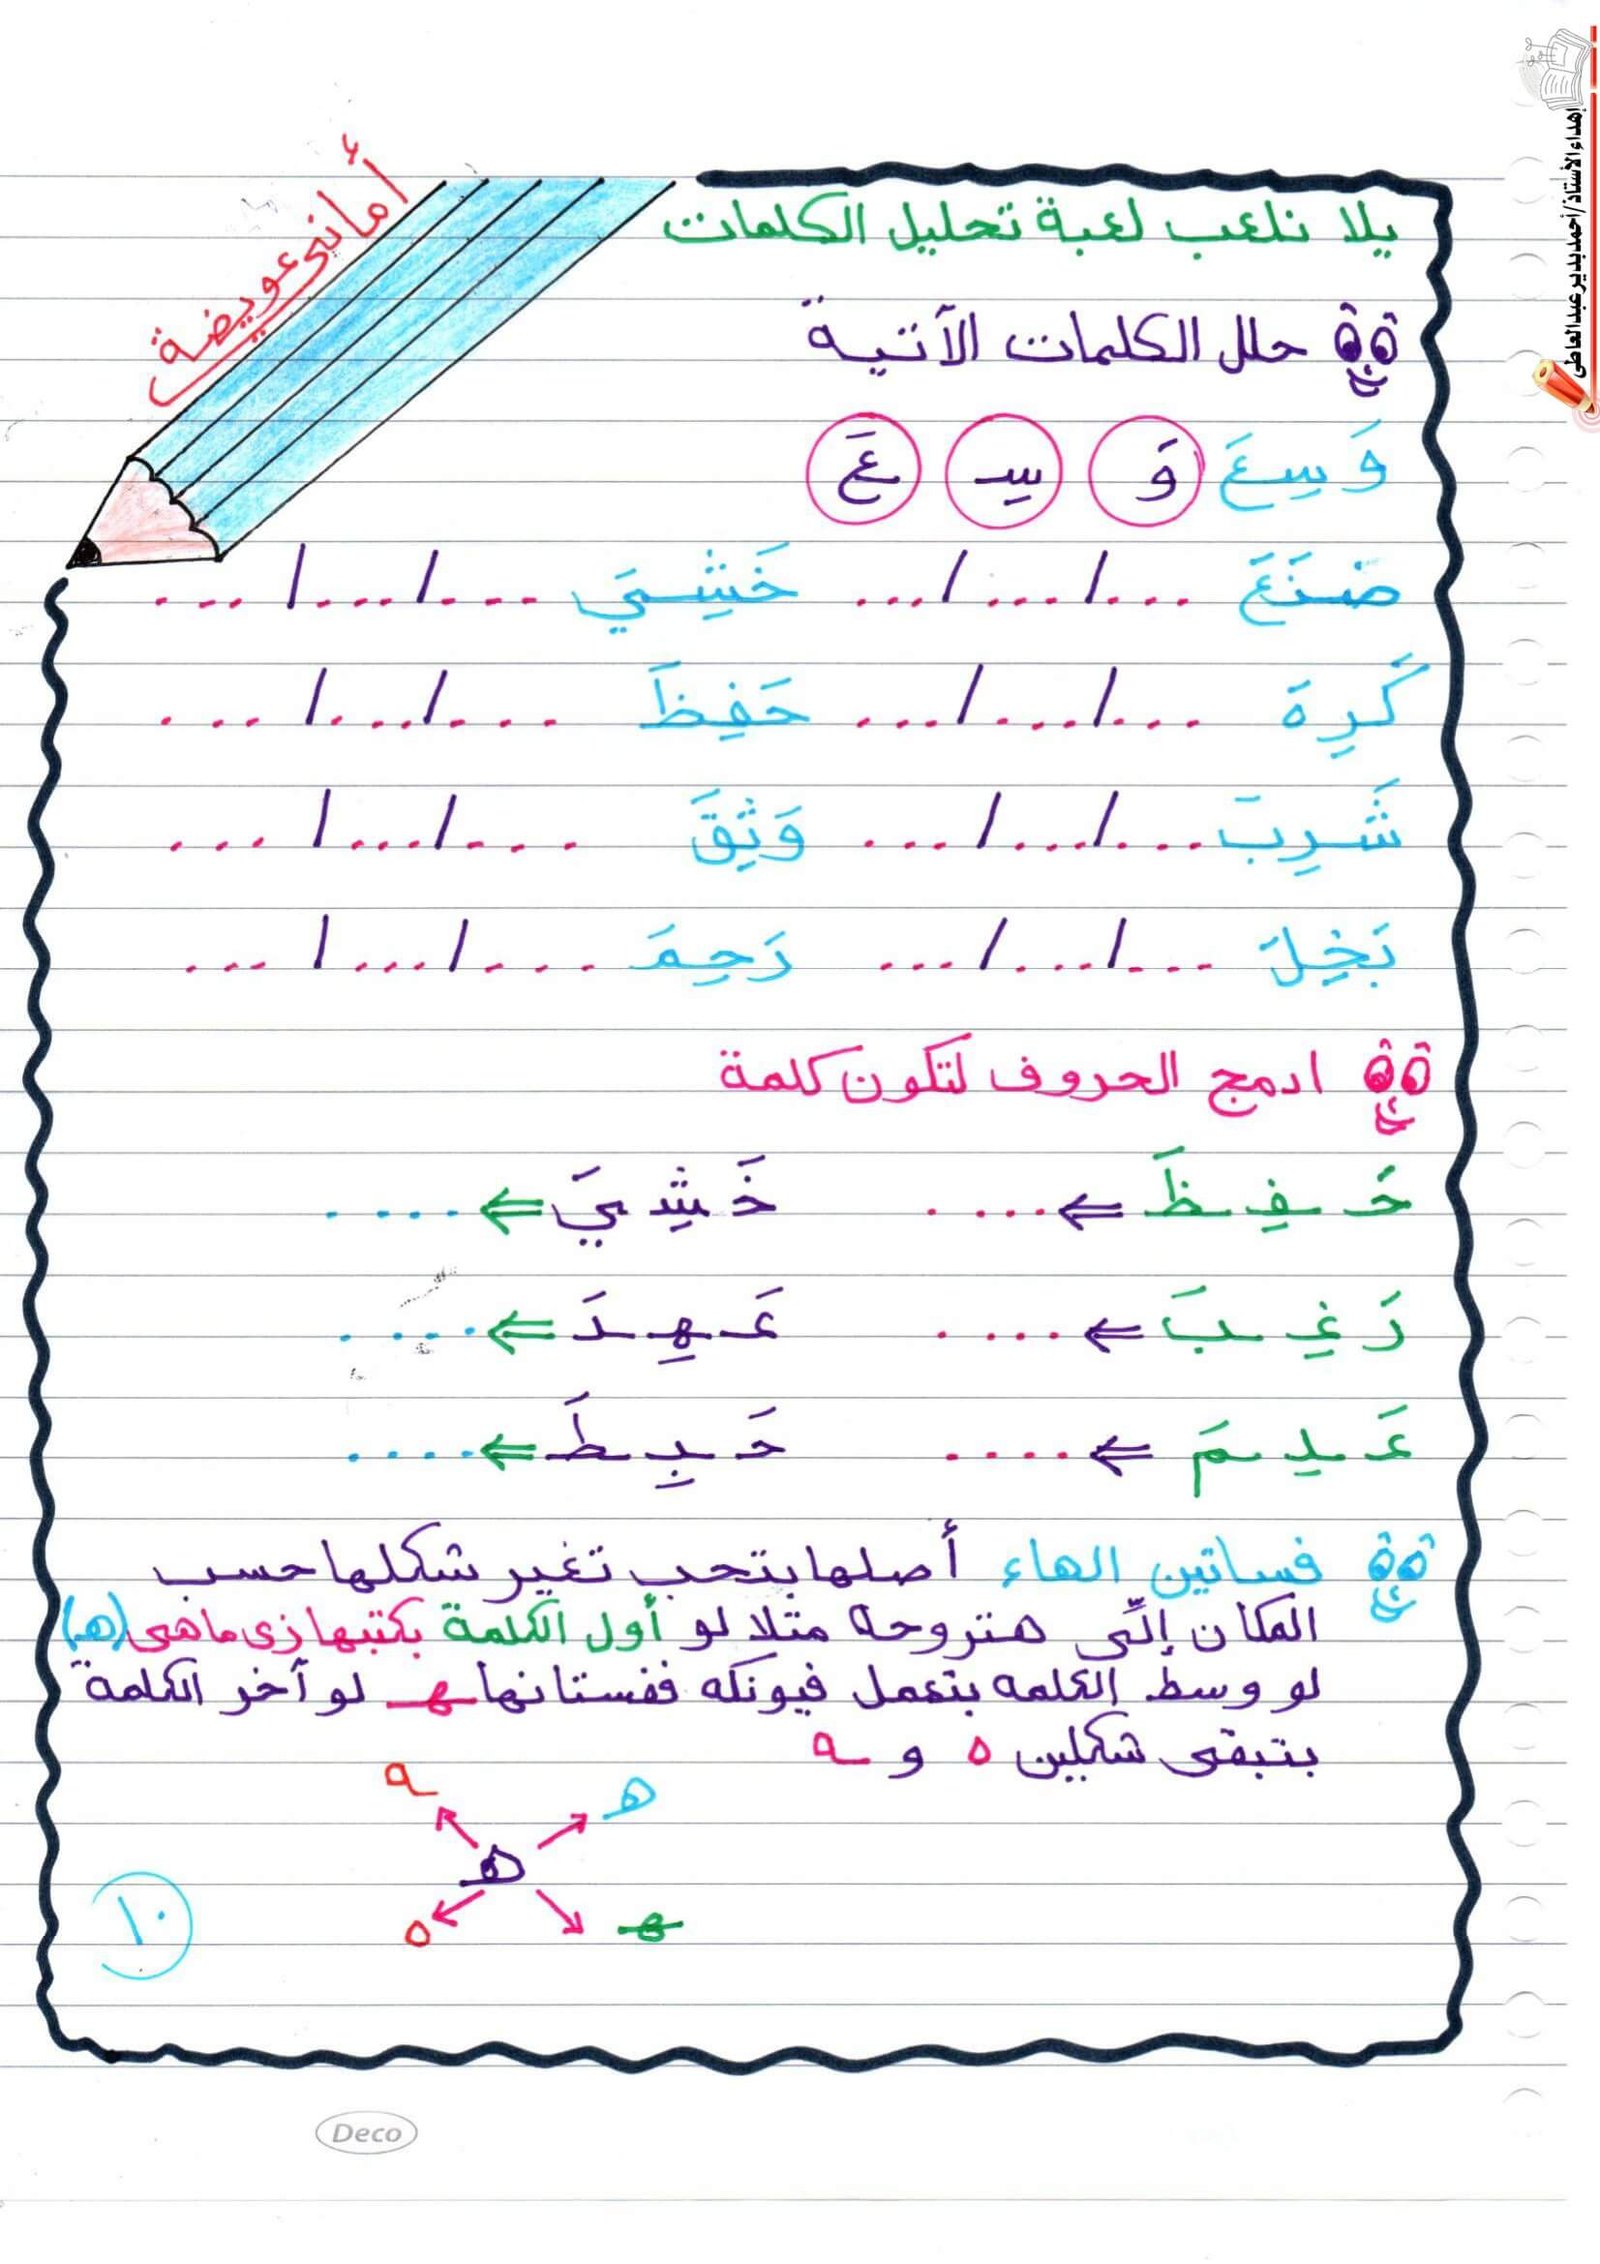 إهداء الأستاذ/أحمد بدير عبدالعاطى
أمانى عويضة
يلا نلعب لعبة تحليل الكلمات
حلل الكلمات الآتية
وَسِعَ وَ سِـ عَ
صَنَعَ .../.../... خَشِيَ .../.../...
كَرِهَ .../.../... حَفِظَ .../.../...
شَرِبَ .../.../... وَثِقَ .../.../...
بَخِلَ .../.../... رَحِمَ .../.../...
ادمج الحروف لتكون كلمة
حَـ فِـ ظَ ⇐ .... خَـ شِـ يَ ⇐ ....
رَ غِـ بَ ⇐ .... عَـ هِـ دَ ⇐ ....
عَـ لِـ مَ ⇐ .... حَـ بِـ طَ ⇐ ....
فساتين الهاء أصلها بتحب تغير شكلها حسب
المكان إلّى هنتروحه مثلا لو أول الكلمة بكتبها زى ماهى (هـ)
لو وسط الكلمه بتعمل فيونكه ففستانها ـهـ لو آخر الكلمة
بتبقى شكلين ه و ـه
ـه هـ
هـ
ه ـهـ
١٠
Deco